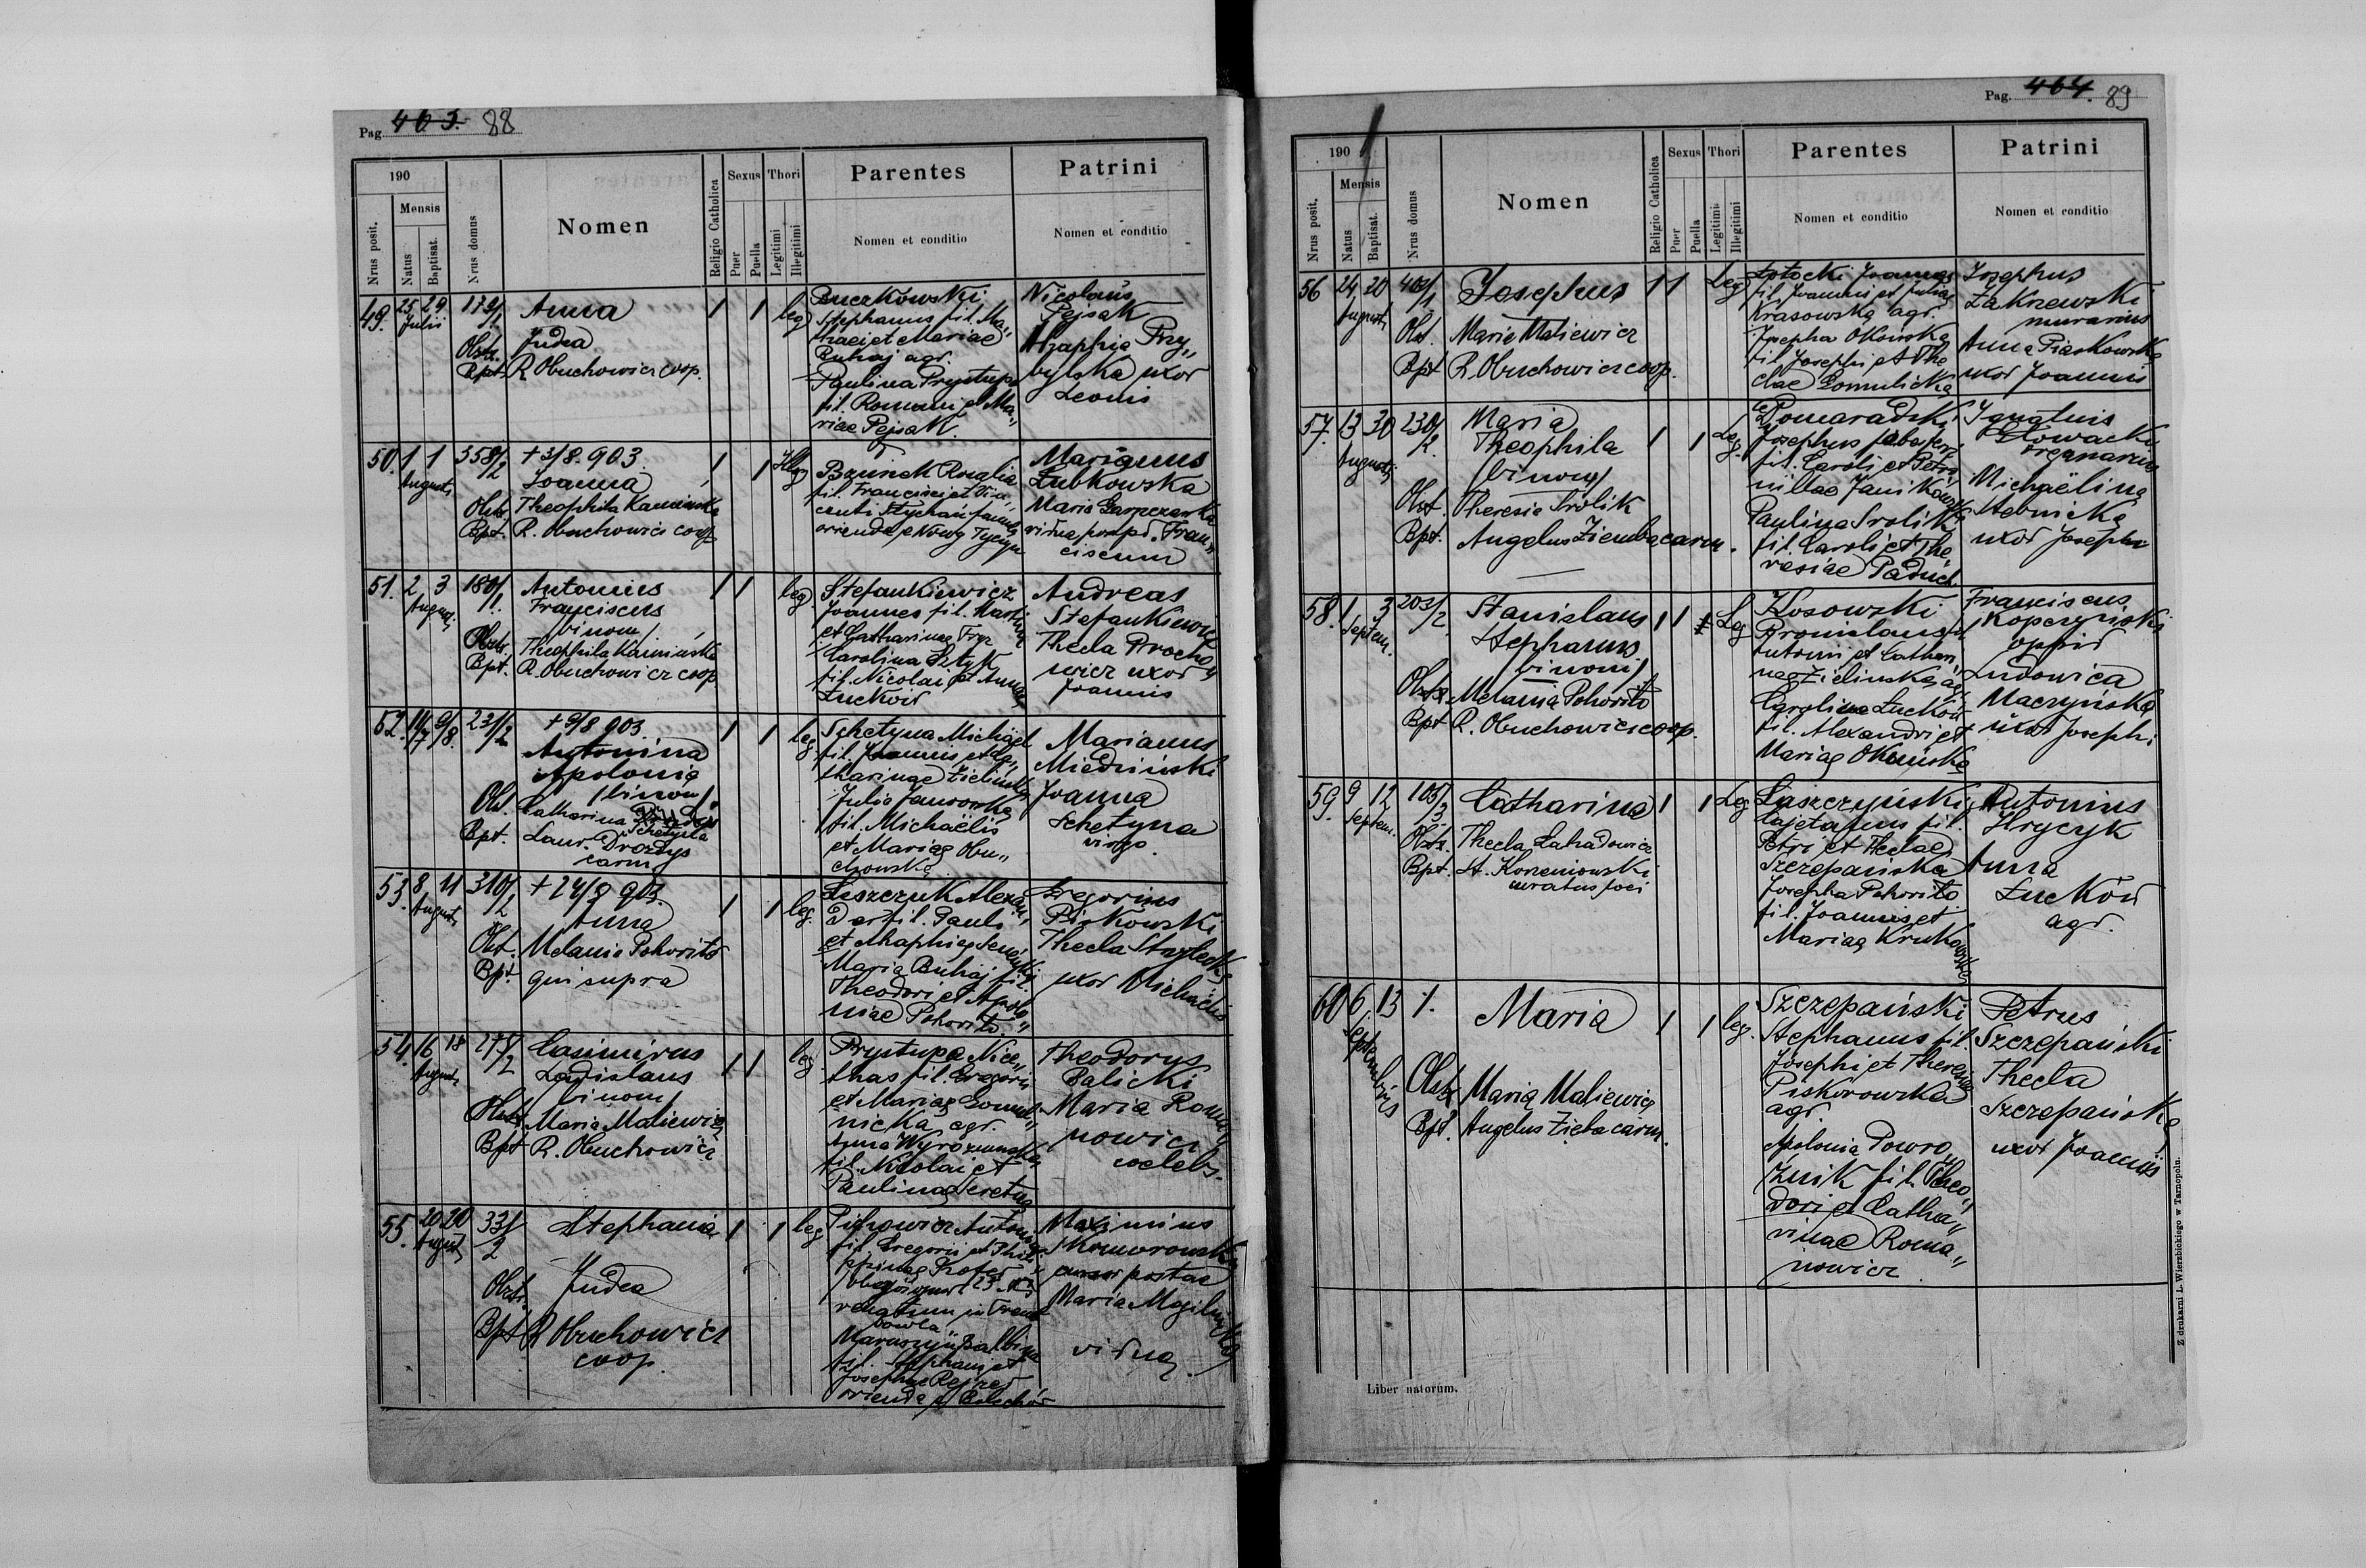 Pag. 463. 88
190
Nrus posit.
Mensis
Natus
Baptisat.
Nrus domus
Nomen
Religio Catholica
Sexus
Puer
Puella
Thori
Legitimi
Illegitimi
Parentes
Nomen et conditio
Patrini
Nomen et conditio
49. 25 29 Julii
Anna
Judea
Bpt. R Obuchowicz coop.
1 1 leg
Buczkowski
Stephanus fil. Ma„
thaei et Mariae
Buhaj agr.
Paulina Prystupa
fil. Romani et Ma„
riae Pejsak.
Nicolaus
Pejsak
Ahzaphia Przy„
bylska uxor
Leonis
50. 1 1 Augusti
358/2
+3/8. 903.
Joanna
Obst. Theophila Kaminska
Bpt. R. Obuchowicz coop
1 1 Illeg
Brzunek Rozalia
fil. Francisci et Vin„
Marianus
Łubkowska
Maria
ciscum
51. 2 3 Augusti
180/1.
Antonius
Franciscus
/binom/
Obst. Theophila Kaminska
Bpt. R. Obuchowicz coop
1 1 leg
Stefankiewicz
Joannes fil. Martini
et Catharinae Fryz
Carolina Sztyk
fil. Nicolai et Annae
Łuckoiv
Andreas
Stefankiewicz
Thecla Procho„
wicz uxor
Joannis
52. 9/8.
231/2
+9/8 903.
Antonina
Apolonia
/binom/
Obst. Catharina
Schetyna
Bpt. Laur. Drozdys
carm
1 1 leg
Schetyna Michael
fil. Joannis et Ca„
tharinae Zielinska
Julia Janowska
fil. Michaëlis
et Mariae Obu„
chowska
Marianus
Miedziński
Joanna
Schetyna
virgo.
53. 8 11 Augusti
310/2
+24/9 903.
Anna
Obst. Melania Pohorito
Bpt. qui supra
1 1 leg.
Leszczuk Alexan„
der fil. Pauli
Maria Buhaj fil.
Theodori et Apolo„
niae Pohorito.
Gregorius
Piskowski
Thecla
uxor Michaëlis
54. 16 18 Augusti
277/2
Casimirus
Ladislaus
/binom/
Obst. Maria Maliewicz
Bpt R. Obuchowicz
1 1 leg
Prystupa Nice„
thas fil. Gregorii
et Mariae Gomul„
nicka agr.
Anna Wyrozumska
fil. Nicolai et
Paulinae
Theodorus
Balicki
Maria Roma„
nowicz
coelebs.
55. 20 20 Augusti
331/2
Stephania
Obst. Judea
Bpt R Obuchowicz
coop.
1 1 leg
Pichowicz Antonius
fil. Gregorii et Phili„
ppinae
Balbina
fil. Stephani et
Josephae
Maximius
Komorowski
postae
Maria
vidua
Pag. 464. 89
190 1
Nrus posit.
Mensis
Natus
Baptisat.
Nrus domus
Nomen
Religio Catholica
Sexus
Puer
Puella
Thori
Legitimi
Illegitimi
Parentes
Nomen et conditio
Patrini
Nomen et conditio
56 24 20 Augusti
Josephus
Obst. Maria Maliewicz
Bpt R. Obuchowicz coop.
1 1 Leg
fil. Joannis et Juliae
Krasowska agr.
Josepha Okońska
fil. Josephi et The
clae Gomulicka
Josephus
Zakrzewski
murarius
Anna Piaskowska
uxor Joannis
57. 13 30 Augusti
230/2.
Maria
Theophila
/binom/
Obst. Theresia Srolik
Bpt. Angelus Ziemba carm.
1 1 Leg.
Pomaradzki
Josephus
fil. Caroli et Petro
nillae
Paulina Srolik
fil. Caroli et The
resiae Paduch
Ignatius
Głowacki
organarius
Michaëlina
Stebnicka
uxor Josephi
58. 1 3 Septem.
203/2
Stanislaus
Stephanus
/binom/
Obst. Melania Pohorito
Bpt R. Obuchowicz coop.
1 1 Leg
Kosowski
Bronislaus fil.
Antonii et Cathari„
nae Zielinska agr.
Carolina Łuckow
fil. Alexandri et
Mariae Okińska
Franciscus
Kopczyński
oppid
Ludovica
Maczyńska
uxor Josephi
59. 9 12 Septem.
105/3.
Catharina
Obst. Thecla
Bpt. St. Korzeniowski
curatus loci
1 1 Leg
Laszczyński
Cajetanus fil.
Petri et Theclae
Szczepańska
Josepha Pohorito
fil. Joannis et
Mariae Krukowska
Antonius
Hrycyk
Anna
Łuckow
agr.
60 6 13 Septembris
1.
Maria
Obst. Maria Maliewicz
Bpt. Angelus Zięba carm.
1 1 leg.
Szczepański
Stephanus fil.
Josephi et Theresiae
Piskorowska
agr.
Apolonia Powro„
źnik fil. Theo„
dori et Catha„
rinae Roma„
nowicz.
Petrus
Szczepański
Thecla
Szczepańska
uxor Joannis
Liber natorum.
Z drukarni L. Wierzbickiego w Tarnopolu.